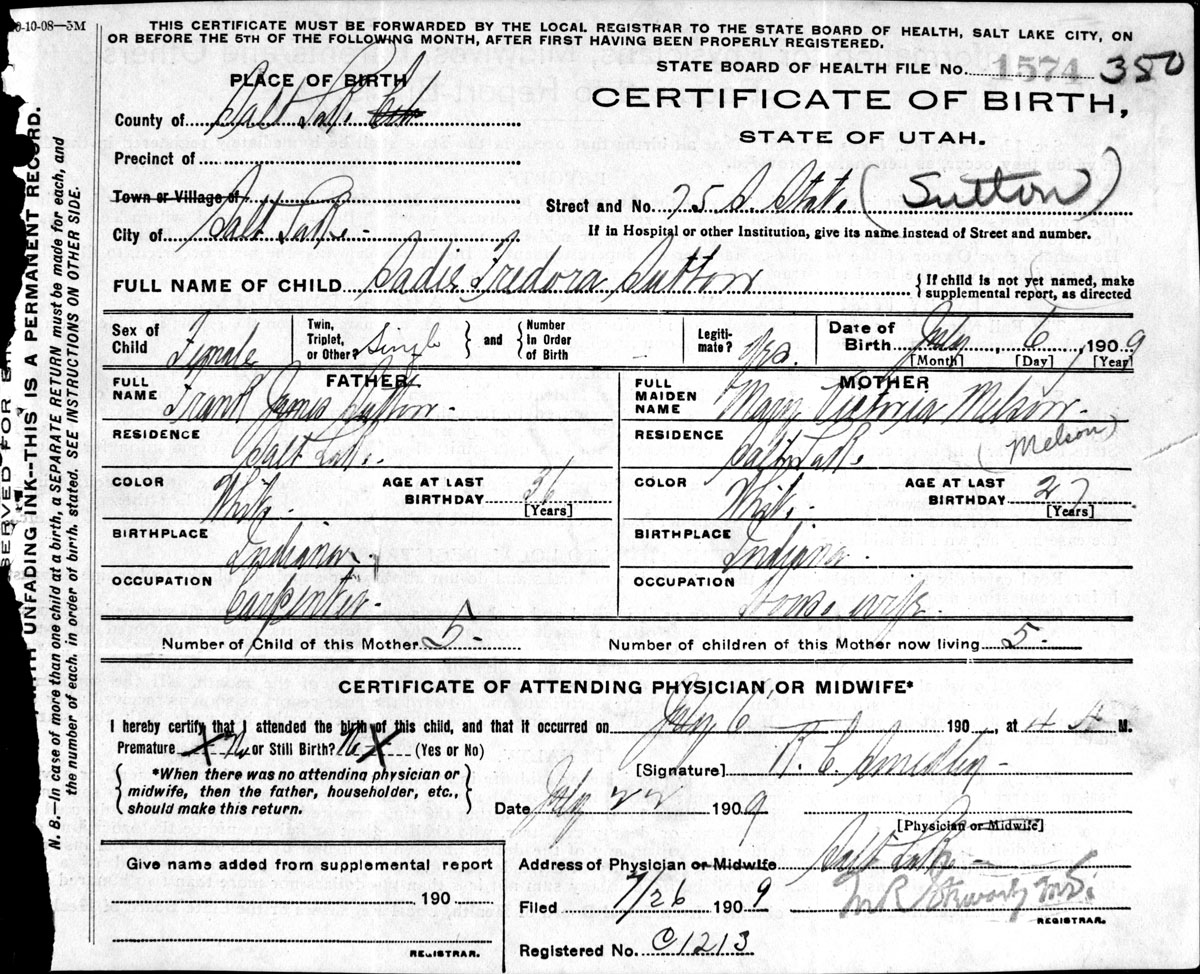 0-10-08—5M
THIS CERTIFICATE MUST BE FORWARDED BY THE LOCAL REGISTRAR TO THE STATE BOARD OF HEALTH, SALT LAKE CITY, ON
OR BEFORE THE 5TH OF THE FOLLOWING MONTH, AFTER FIRST HAVING BEEN PROPERLY REGISTERED.
STATE BOARD OF HEALTH FILE No. 1574 350
PLACE OF BIRTH
CERTIFICATE OF BIRTH,
STATE OF UTAH.
County of Salt Lake
Precinct of
Town or Village of
City of Salt Lake
Street and No. 75 S. State (Sutton)
If in Hospital or other Institution, give its name instead of Street and number.
FULL NAME OF CHILD Sadie Fredora Sutton
If child is not yet named, make
supplemental report, as directed
Sex of Child Female
Twin, Triplet, or Other? Single and Number In Order of Birth -
Legiti-mate? Yes.
Date of Birth July 6, 1909
[Month] [Day] [Year]
FATHER
FULL NAME Frank James Sutton.
RESIDENCE Salt Lake.
COLOR White AGE AT LAST BIRTHDAY 36 [Years]
BIRTHPLACE Indiana
OCCUPATION Carpenter.
MOTHER
FULL MAIDEN NAME Mary Victoria Melson.
RESIDENCE Salt Lake. (Melson)
COLOR White. AGE AT LAST BIRTHDAY 27 [Years]
BIRTHPLACE Indiana
OCCUPATION House wife.
Number of Child of this Mother 5 Number of children of this Mother now living 5.
CERTIFICATE OF ATTENDING PHYSICIAN OR MIDWIFE*
I hereby certify that I attended the birth of this child, and that it occurred on July 6 190 , at 4 A M.
Premature No or Still Birth? No (Yes or No)
*When there was no attending physician or
midwife, then the father, householder, etc.,
should make this return.
[Signature] R. C. Smedley
Date July 22 1909
[Physician or Midwife]
Give name added from supplemental report
190
REGISTRAR.
Address of Physician or Midwife Salt Lake
Filed 7/26 1909 M R Stewart M.D.
REGISTRAR.
Registered No. C1213
SERVED FOR BIN
UNFADING INK--THIS IS A PERMANENT RECORD.
N. B.—In case of more than one child at a birth, a SEPARATE RETURN must be made for each, and
the number of each, in order of birth, stated. SEE INSTRUCTIONS ON OTHER SIDE.